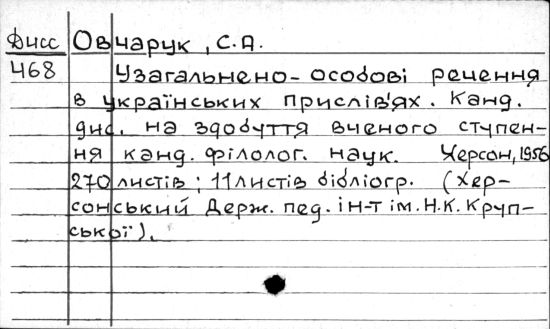 Дисс Овчарук, С.А.
468 Узагальнено-особові речення
в українських прислів'ях. Канд.
дис. на здобуття вченого ступен-
ня канд. філолог. наук. Херсон, 1956
270 листів; 11 листів бібліогр. (Хер-
сонський Держ. пед. ін-т ім. Н.К. Круп-
ської).